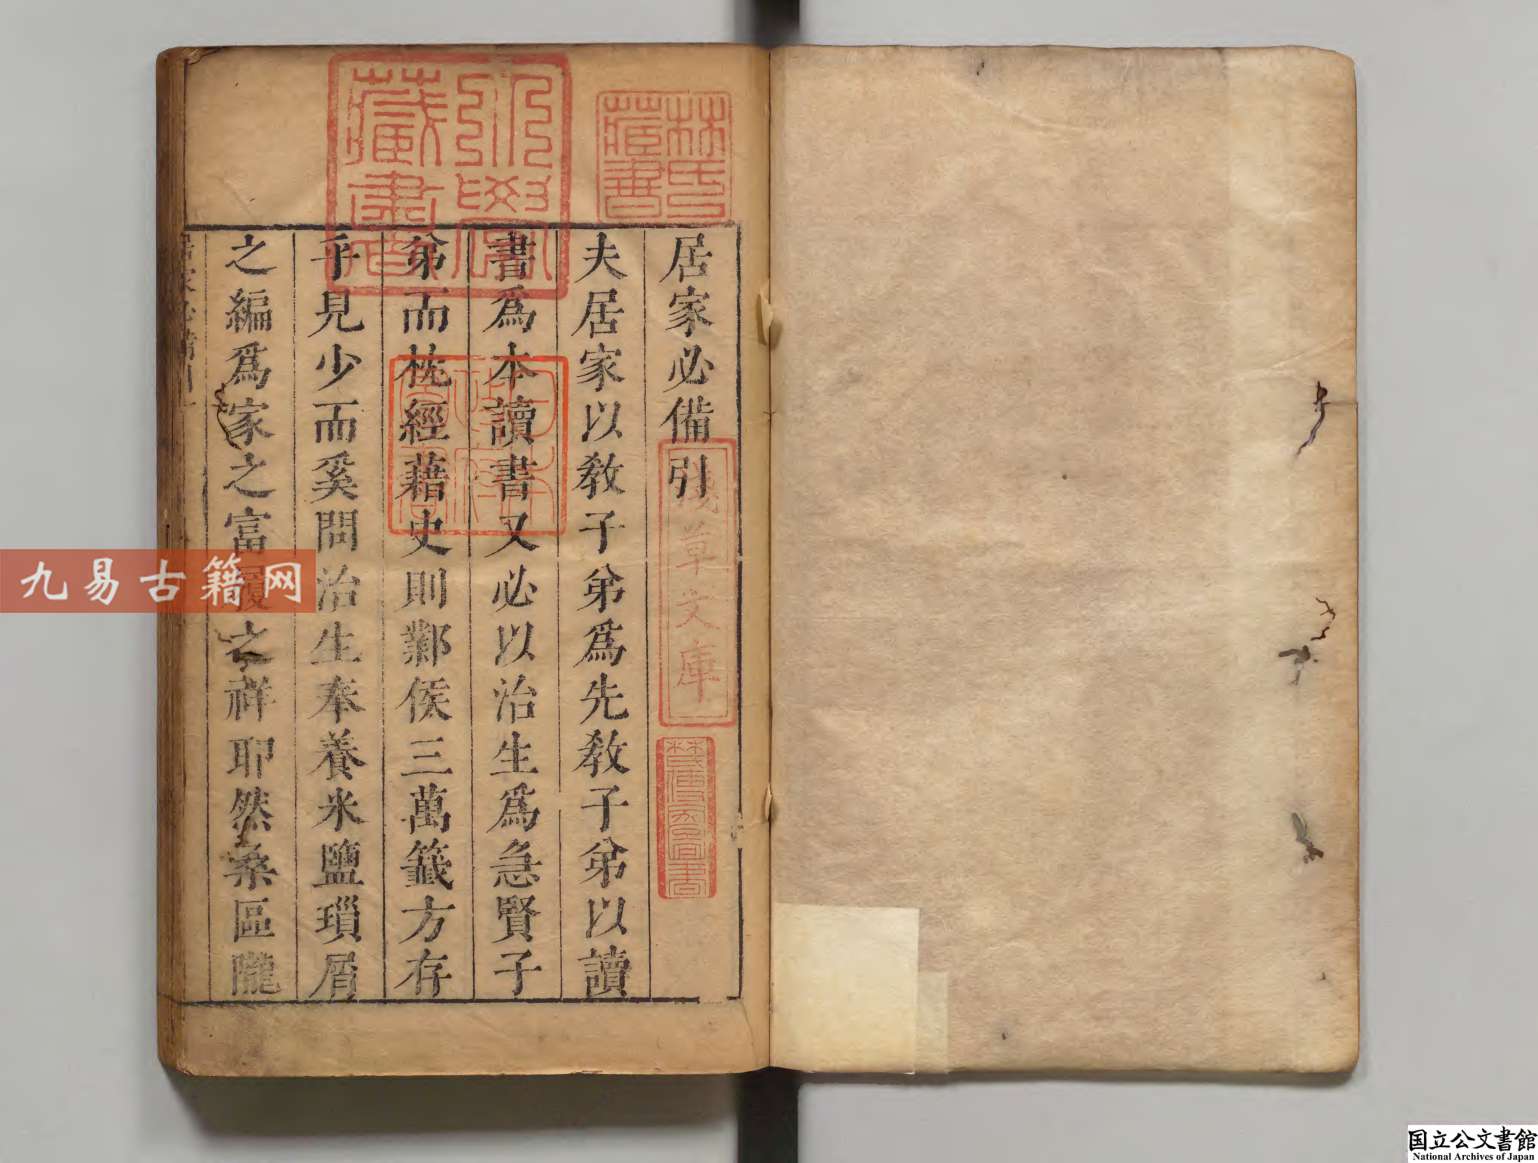 居家必備引
夫居家以教子弟爲先教子弟以讀
書爲本讀書又必以治生爲急賢子
弟而枕經藉史則鄴侯三萬籤方存
乎見少而奚問治生奉養米鹽瑣屑
之編爲家之富履之祥耶然桑區隴
居家必備引
林氏藏書
淺草文庫
九易古籍网
国立公文書館
National Archives of Japan